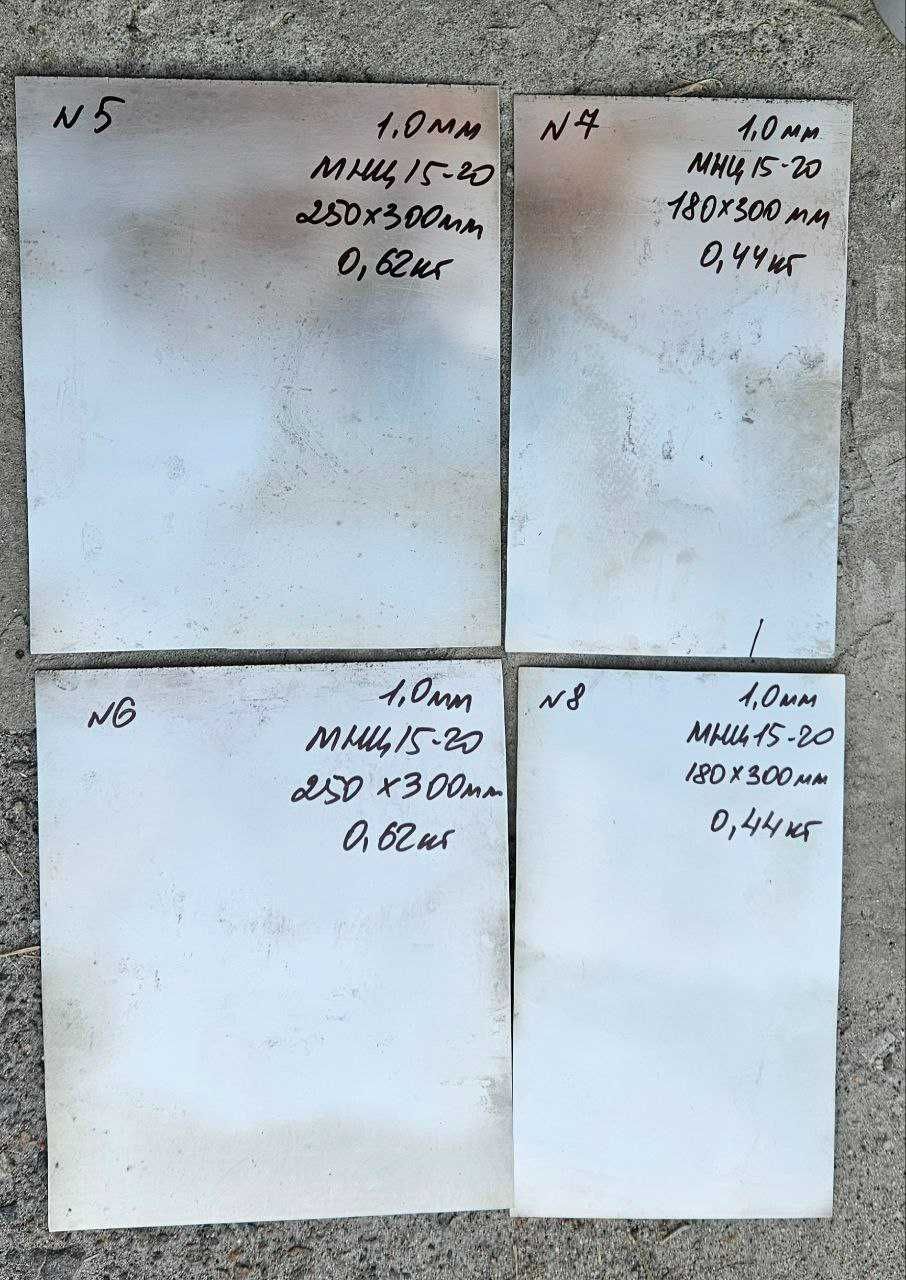 N5
1,0мм
МНЦ 15-20
250×300мм
0,62кг
N7
1,0мм
МНЦ 15-20
180×300мм
0,44кг
N6
1,0мм
МНЦ 15-20
250×300мм
0,62кг
N8
1,0мм
МНЦ 15-20
180×300мм
0,44кг